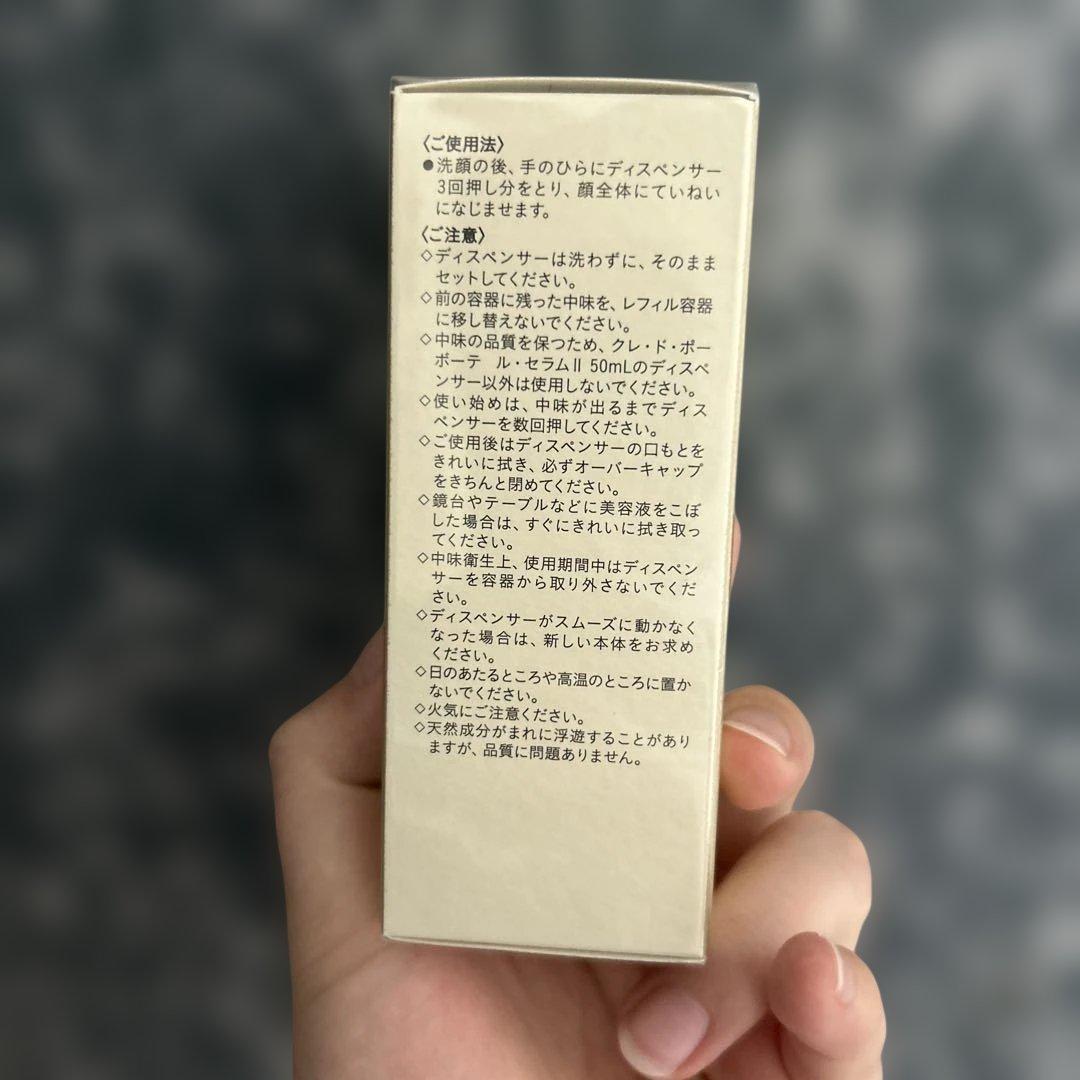 〈ご使用法〉
●洗顔の後、手のひらにディスペンサー
3回押し分をとり、顔全体にていねい
になじませます。
〈ご注意〉
◇ディスペンサーは洗わずに、そのまま
セットしてください。
◇前の容器に残った中味を、レフィル容器
に移し替えないでください。
◇中味の品質を保つため、クレ・ド・ポー
ボーテ ル・セラムⅡ 50mLのディスペ
ンサー以外は使用しないでください。
◇使い始めは、中味が出るまでディス
ペンサーを数回押してください。
◇ご使用後はディスペンサーの口もとを
きれいに拭き、必ずオーバーキャップ
をきちんと閉めてください。
◇鏡台やテーブルなどに美容液をこぼ
した場合は、すぐにきれいに拭き取っ
てください。
◇中味衛生上、使用期間中はディスペン
サーを容器から取り外さないでくだ
さい。
◇ディスペンサーがスムーズに動かなく
なった場合は、新しい本体をお求め
ください。
◇日のあたるところや高温のところに置か
ないでください。
◇火気にご注意ください。
◇天然成分がまれに浮遊することがあり
ますが、品質に問題ありません。